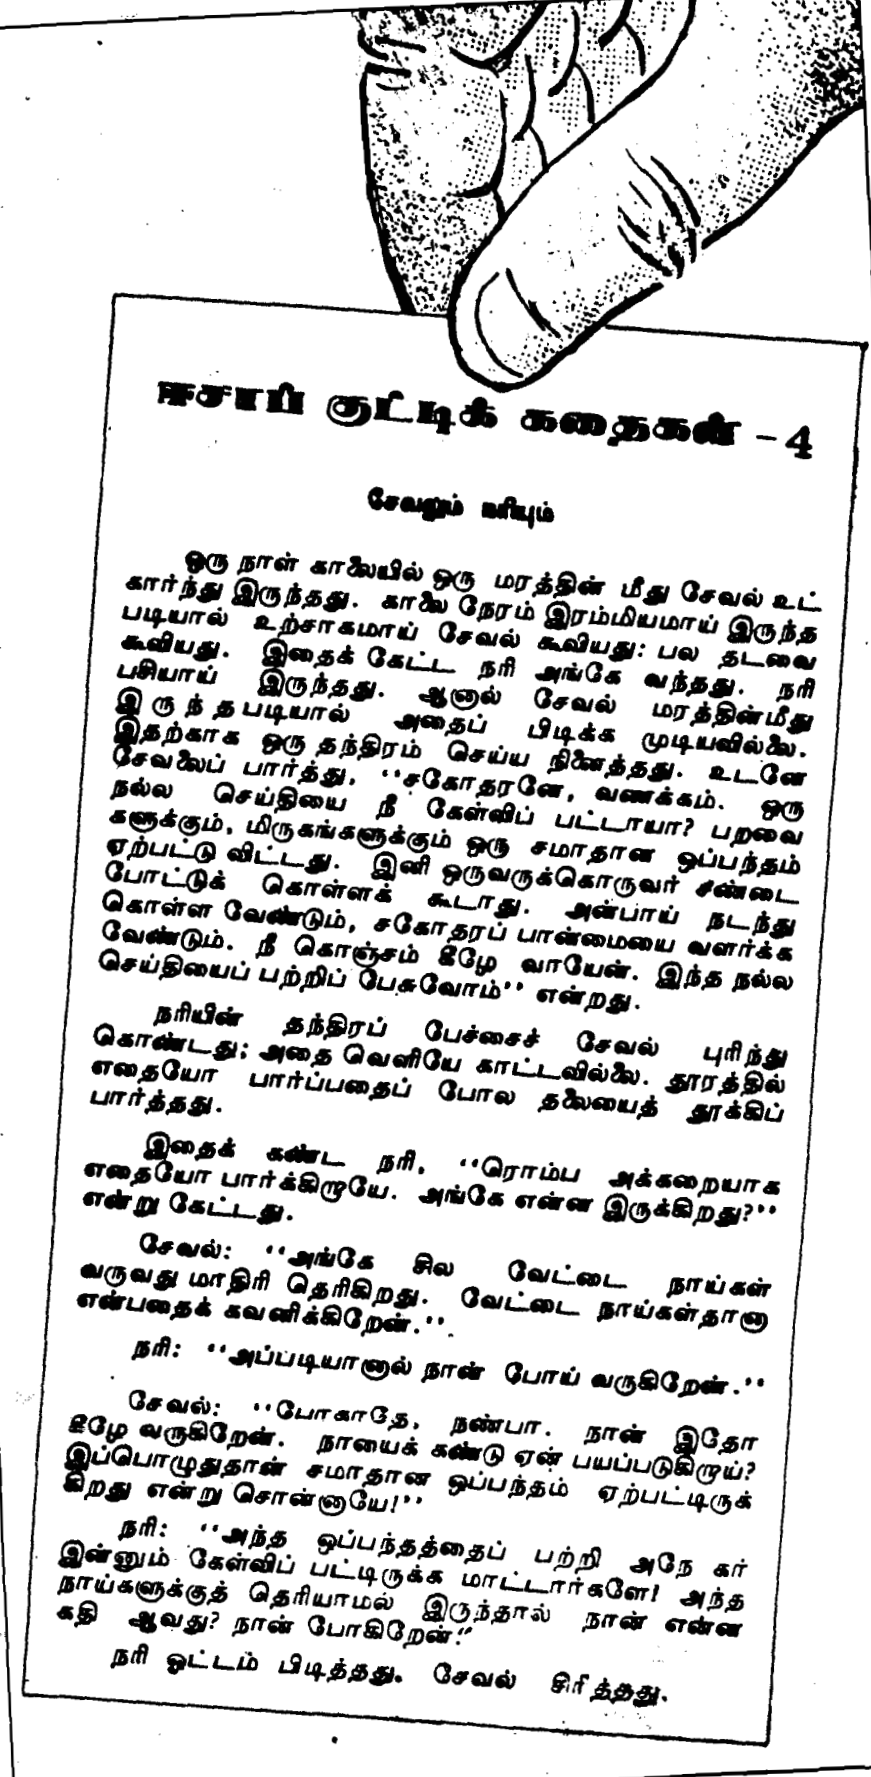 ஈசாப் குட்டிக் கதைகள் - 4
சேவலும் நரியும்
ஒரு நாள் காலையில் ஒரு மரத்தின் மீது சேவல் உட்
கார்ந்து இருந்தது. காலை நேரம் இரம்மியமாய் இருந்த
படியால் உற்சாகமாய் சேவல் கூவியது: பல தடவை
கூவியது. இதைக் கேட்ட நரி அங்கே வந்தது. நரி
பசியாய் இருந்தது. ஆனால் சேவல் மரத்தின்மீது
இருந்தபடியால் அதைப் பிடிக்க முடியவில்லை.
இதற்காக ஒரு தந்திரம் செய்ய நினைத்தது. உடனே
சேவலைப் பார்த்து, ‘‘சகோதரனே, வணக்கம். ஒரு
நல்ல செய்தியை நீ கேள்விப் பட்டாயா? பறவை
களுக்கும், மிருகங்களுக்கும் ஒரு சமாதான ஒப்பந்தம்
ஏற்பட்டு விட்டது. இனி ஒருவருக்கொருவர் சண்டை
போட்டுக் கொள்ளக் கூடாது. அன்பாய் நடந்து
கொள்ள வேண்டும், சகோதரப் பான்மையை வளர்க்க
வேண்டும். நீ கொஞ்சம் கீழே வாயேன். இந்த நல்ல
செய்தியைப் பற்றிப் பேசுவோம்’’ என்றது.
நரியின் தந்திரப் பேச்சைச் சேவல் புரிந்து
கொண்டது; அதை வெளியே காட்டவில்லை. தூரத்தில்
எதையோ பார்ப்பதைப் போல தலையைத் தூக்கிப்
பார்த்தது.
இதைக் கண்ட நரி, ‘‘ரொம்ப அக்கறையாக
எதையோ பார்க்கிறாயே. அங்கே என்ன இருக்கிறது?’’
என்று கேட்டது.
சேவல்: ‘‘அங்கே சில வேட்டை நாய்கள்
வருவது மாதிரி தெரிகிறது. வேட்டை நாய்கள்தானா
என்பதைக் கவனிக்கிறேன்.’’
நரி: ‘‘அப்படியானால் நான் போய் வருகிறேன்.’’
சேவல்: ‘‘போகாதே, நண்பா. நான் இதோ
கீழே வருகிறேன். நாயைக் கண்டு ஏன் பயப்படுகிறாய்?
இப்பொழுதுதான் சமாதான ஒப்பந்தம் ஏற்பட்டிருக்
கிறது என்று சொன்னாயே!’’
நரி: ‘‘அந்த ஒப்பந்தத்தைப் பற்றி அநே கர்
இன்னும் கேள்விப் பட்டிருக்க மாட்டார்களே! அந்த
நாய்களுக்குத் தெரியாமல் இருந்தால் நான் என்ன
கதி ஆவது? நான் போகிறேன்.’’
நரி ஓட்டம் பிடித்தது. சேவல் சிரித்தது.